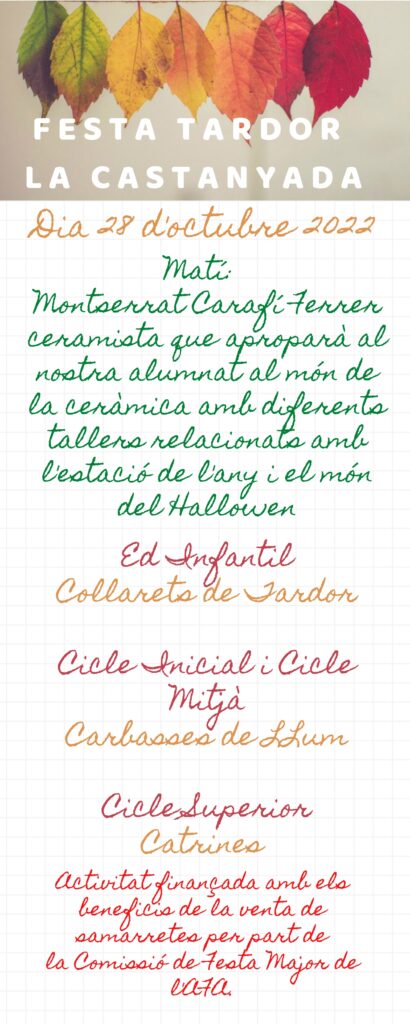 FESTA TARDOR
LA CASTANYADA
Dia 28 d'octubre 2022
Matí:
Montserrat Carafí Ferrer
ceramista que aproparà al
nostra alumnat al món de
la ceràmica amb diferents
tallers relacionats amb
l'estació de l'any i el món
del Hallowen
Ed Infantil
Collarets de Tardor
Cicle Inicial i Cicle
Mitjà
Carbasses de LLum
Cicle Superior
Catrines
Activitat finançada amb els
beneficis de la venta de
samarretes per part de
la Comissió de Festa Major de
l'AFA.